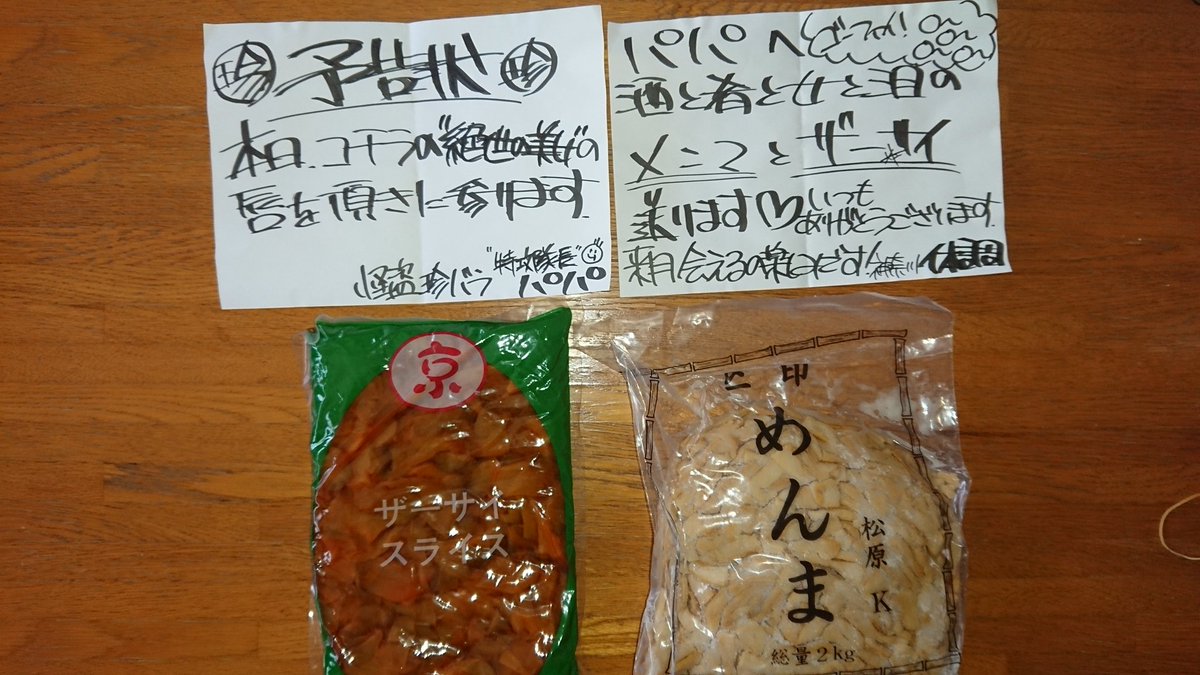 珍 予告状 珍
本日、コチラの"絶世の美女"の
唇を頂きに参ります
怪盗 珍バラ "特攻隊長"
パパ
パパへ
酒と肴と女と泪の
メンマとザーサイ
送ります♡いつも
ありがとうございます
来月会えるの楽しみです!
京
ザーサイ
スライス
印
めんま
松原K
総量2kg